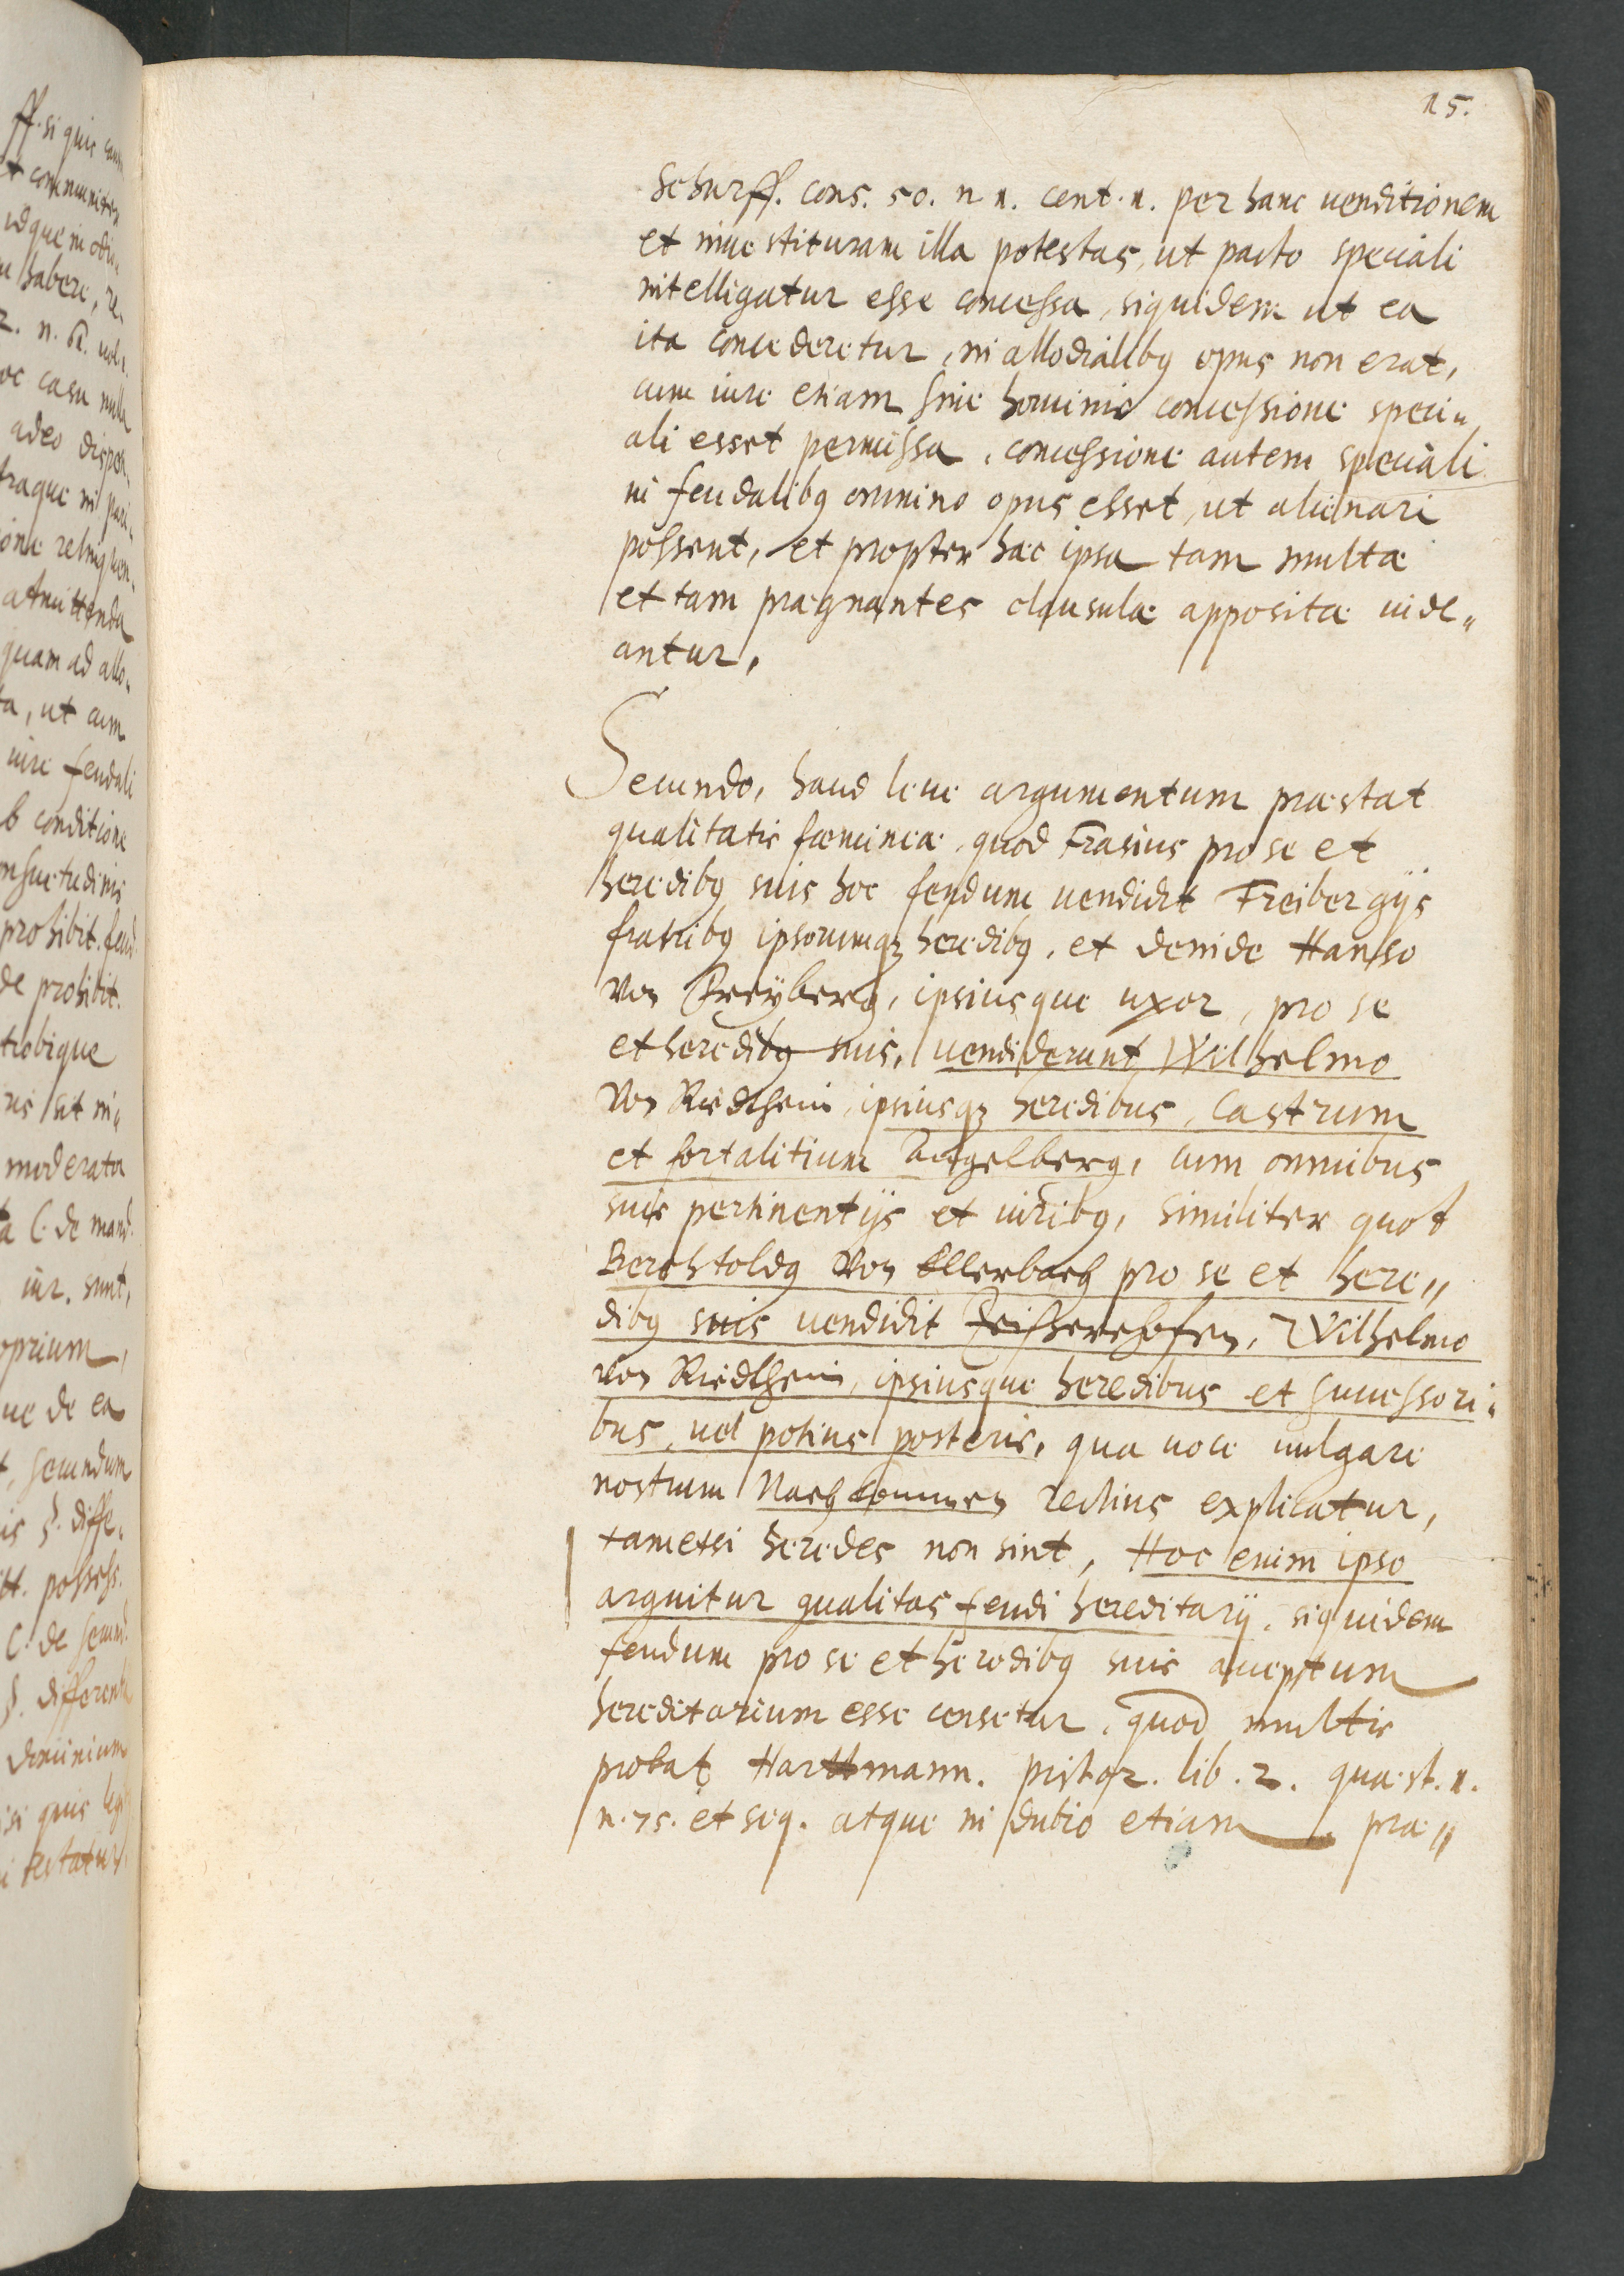 15.
Schurff. cons. 50. n 1. cent. 1. per hanc uenditionem
et inuestituram illa potestas, ut pacto speciali
intelligatur esse concessa, siquidem ut ea
ita concederetur, in allodialibꝫ opus non erat,
cum iure etiam sine hominis concessione speci„
ali esset permissa, concessione autem speciali
in feudalibꝫ omnino opus esset, ut alienari
possent, et propter hæc ipsa tam multæ
et tam prægnantes clausulæ appositæ uide„
antur,
Secundo, haud leue argumentum præstat
qualitatis fœmineæ, quod Erasius pro se et
heredibꝫ suis hoc feudum uendidit Freibergijs
fratribꝫ ipsorumqꝫ heredibꝫ, et deinde Hanso
von Freÿberg, ipsiusque uxor, pro se
et heredibꝫ suis, uendiderunt Wilhelmo
von Riedtheim, ipsiusqꝫ heredibus, castrum
et fortalitium Angelberg, cum omnibus
suis pertinentijs et iuribꝫ, similiter quod
Berchtoldꝫ von Ellerbach pro se et here„
dibꝫ suis uendidit Wilhelmo
von Riedtheim, ipsiusque heredibus et successori„
bus, uel potius posteris, qua uoce uulgare
nostrum Nachkommen rectius explicatur,
tametsi heredes non sint, Hoc enim ipso
arguitur qualitas feudi hereditarij, siquidem
feudum pro se et heredibꝫ suis acceptum
hereditarium esse censetur, quod multis
probat Harttmann. pistor. lib. 2. quæst. 1.
n. 75. et seq. atque in dubio etiam præ„
ff. si quis
communiter
idque in
habere, re„
2. n.
oc casu nulla
adeo
traque in
one
admittenda
quam ad allo„
ta, ut cum
iure feudali
b conditione
consuetudinis
prohibit. feud.
de prohibit.
trobique
sit in„
moderata
C. de mand.
iur. sunt,
oprium,
ue de ea
t, secundum
is §. diffe„
tt. possess.
C. de
§. differentia
dominium
si quis
testatur